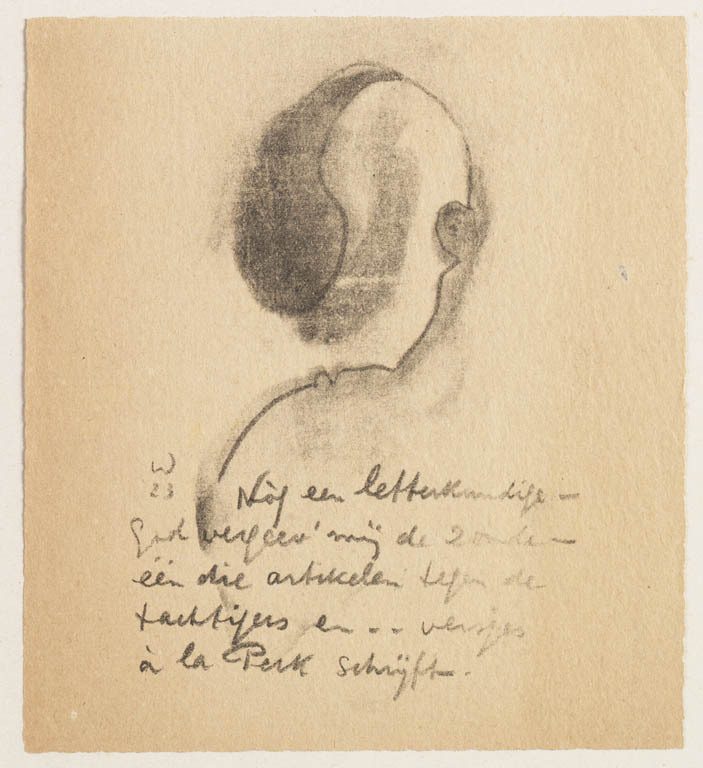 W
23
Nòg een letterkundige –
God vergeev' mij de zonde –
één die artikelen tegen de
tachtigers en -- versjes
à la Perk schrijft.